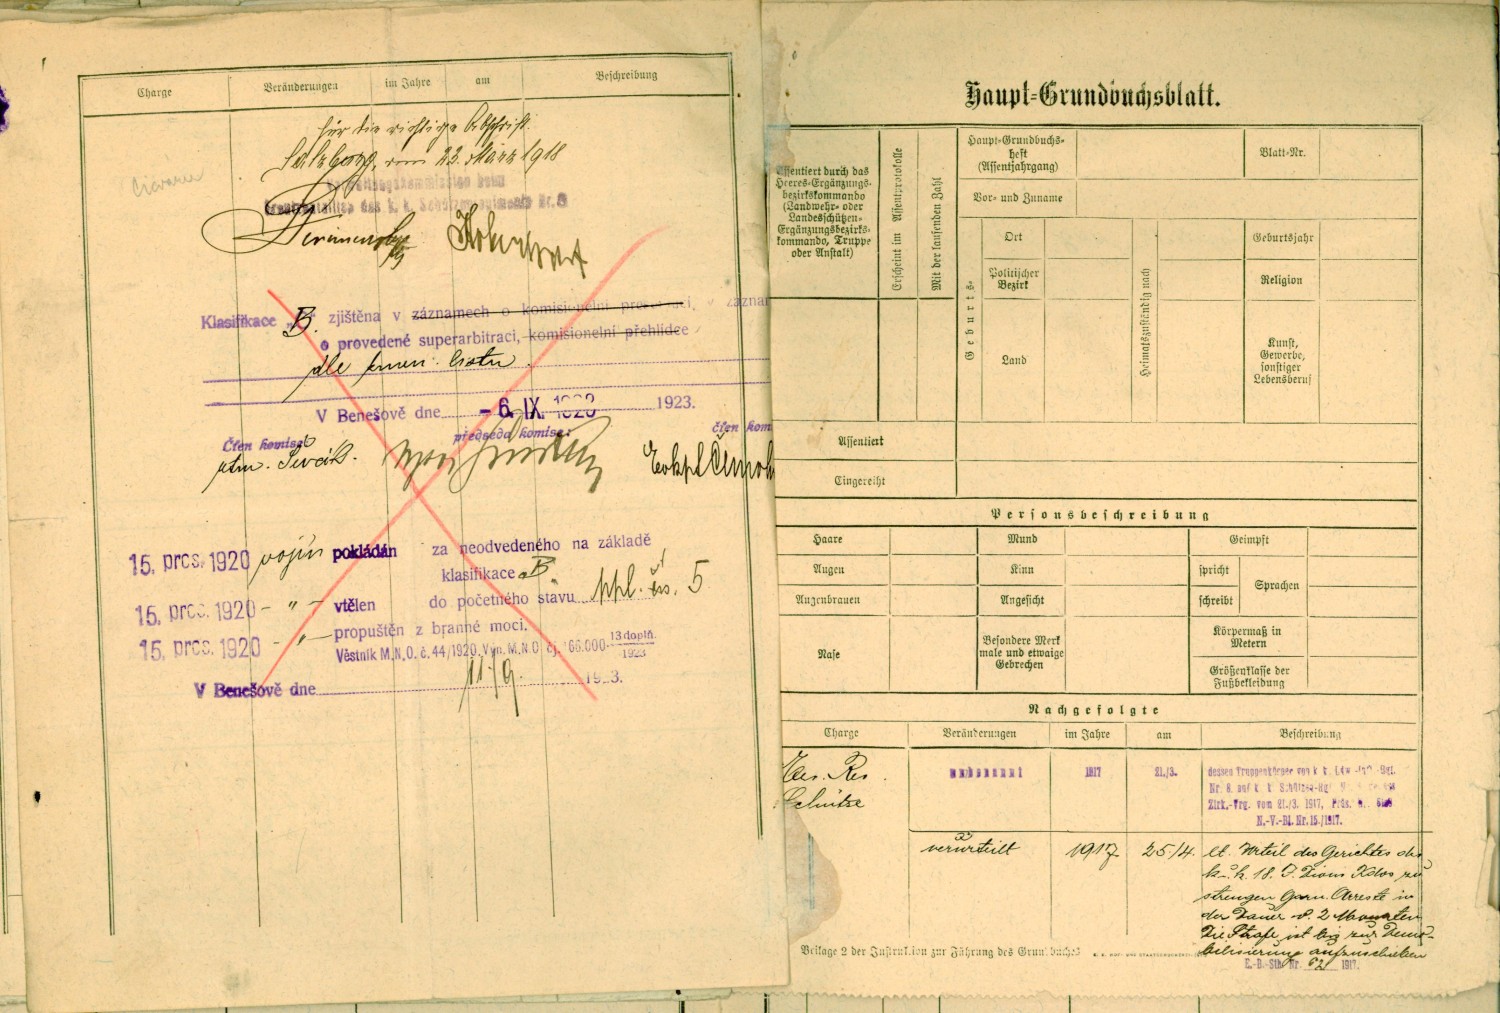 Charge Veränderungen im Jahre am Beschreibung
Für die richtige Abschrift.
Salzburg, vom 23. März 1918
k. k. Nr. 8
Klasifikace „B“ zjištěna v záznamech o komisionelní
o provedené superarbitraci, komisionelní přehlídce
dle kmen. listu.
V Benešově dne - 6. IX. 1923.
Člen komise: předseda komise: člen kom
15. pros. 1920 vojín pokládán za neodvedeného na základě
klasifikace „B“
15. pros. 1920 - „ - vtělen do početného stavu ppl. čís. 5
15. pros. 1920 - „ - propuštěn z branné moci.
Věstník M.N.O. č. 44/1920. Vyn. M.N.O. čj. 166.000 13 doplň. 1923
V Benešově dne 11/9. 1923.
Haupt-Grundbuchsblatt.
Assentiert durch das
Heeres-Ergänzungs-
bezirkskommando
(Landwehr- oder
Landesschützen-
Ergänzungsbezirks-
kommando, Truppe
oder Anstalt)
Erscheint im Assentprotokolle
Mit der laufenden Zahl
Haupt-Grundbuchs-
heft
(Assentjahrgang)
Blatt-Nr.
Vor- und Zuname
Geburts-
Ort
Politischer
Bezirk
Land
Heimatszuständig nach
Geburtsjahr
Religion
Kunst,
Gewerbe,
sonstiger
Lebensberuf
Assentiert
Eingereiht
Personsbeschreibung
Haare Mund Geimpft
Augen Kinn spricht Sprachen
Augenbrauen Angesicht schreibt
Nase
Besondere Merk
male und etwaige
Gebrechen
Körpermaß in
Metern
Größenklasse der
Fußbekleidung
Nachgefolgte
Charge Veränderungen im Jahre am Beschreibung
Res.
Schütze
1917 21./3.
dessen Truppenkörper von k. k. Ldw.-Inf.-Rgt.
Nr. 8 auf k. k. Schützen-Rgt.
Zirk.-Vrg. vom 21./3. 1917, Präs.
N.-V.-Bl. Nr. 15/1917.
verurteilt 1917 25/4. lt. Urteil des Gerichtes des
k. k. 18. I. Dions Kdos zu
strengen Garn. Arreste in
der Dauer v. 2 Monaten
Die Strafe ist bis zur Demo-
bilisierung aufzuschieben
1917.
Beilage 2 der Instruktion zur Führung des Grundbuches